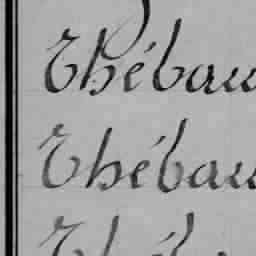 Thébau
Thébau